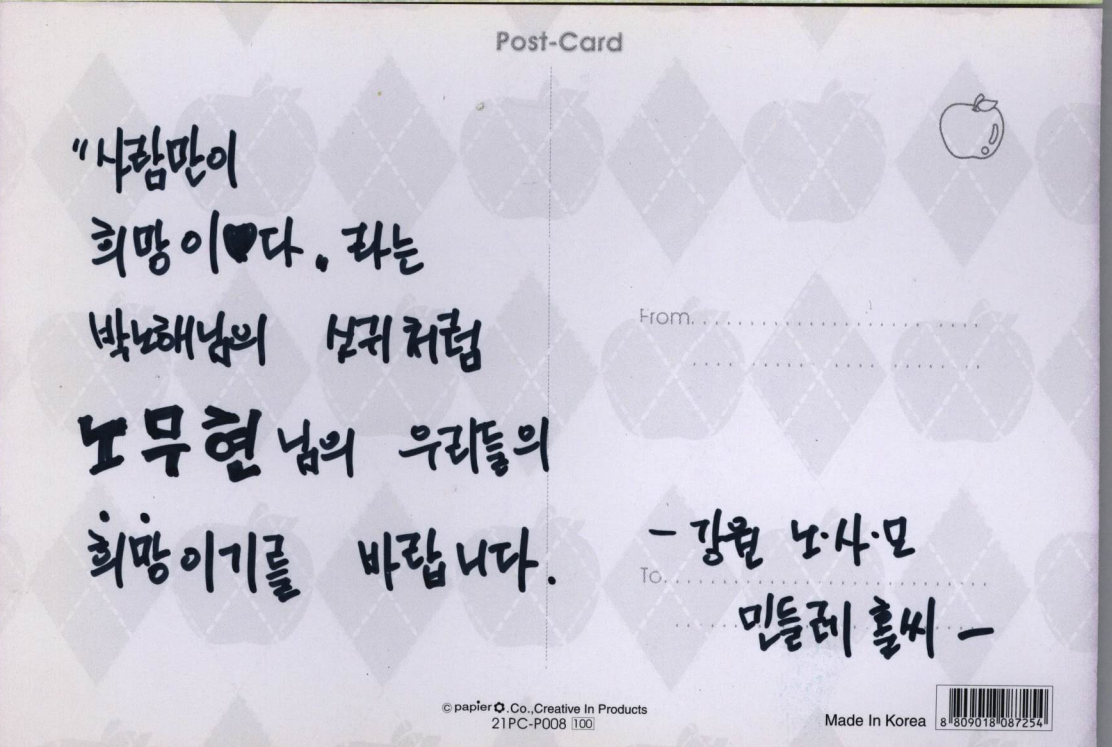 Post-Card
"사람만이
희망이♥다. 라는
박노해님의 싯귀처럼
노무현님의 우리들의
희망이기를 바랍니다.
From
- 강원 노·사·모
To
민들레 홀씨 -
© papier .Co.,Creative In Products
21PC-P008 100
Made In Korea
8 809018 087254